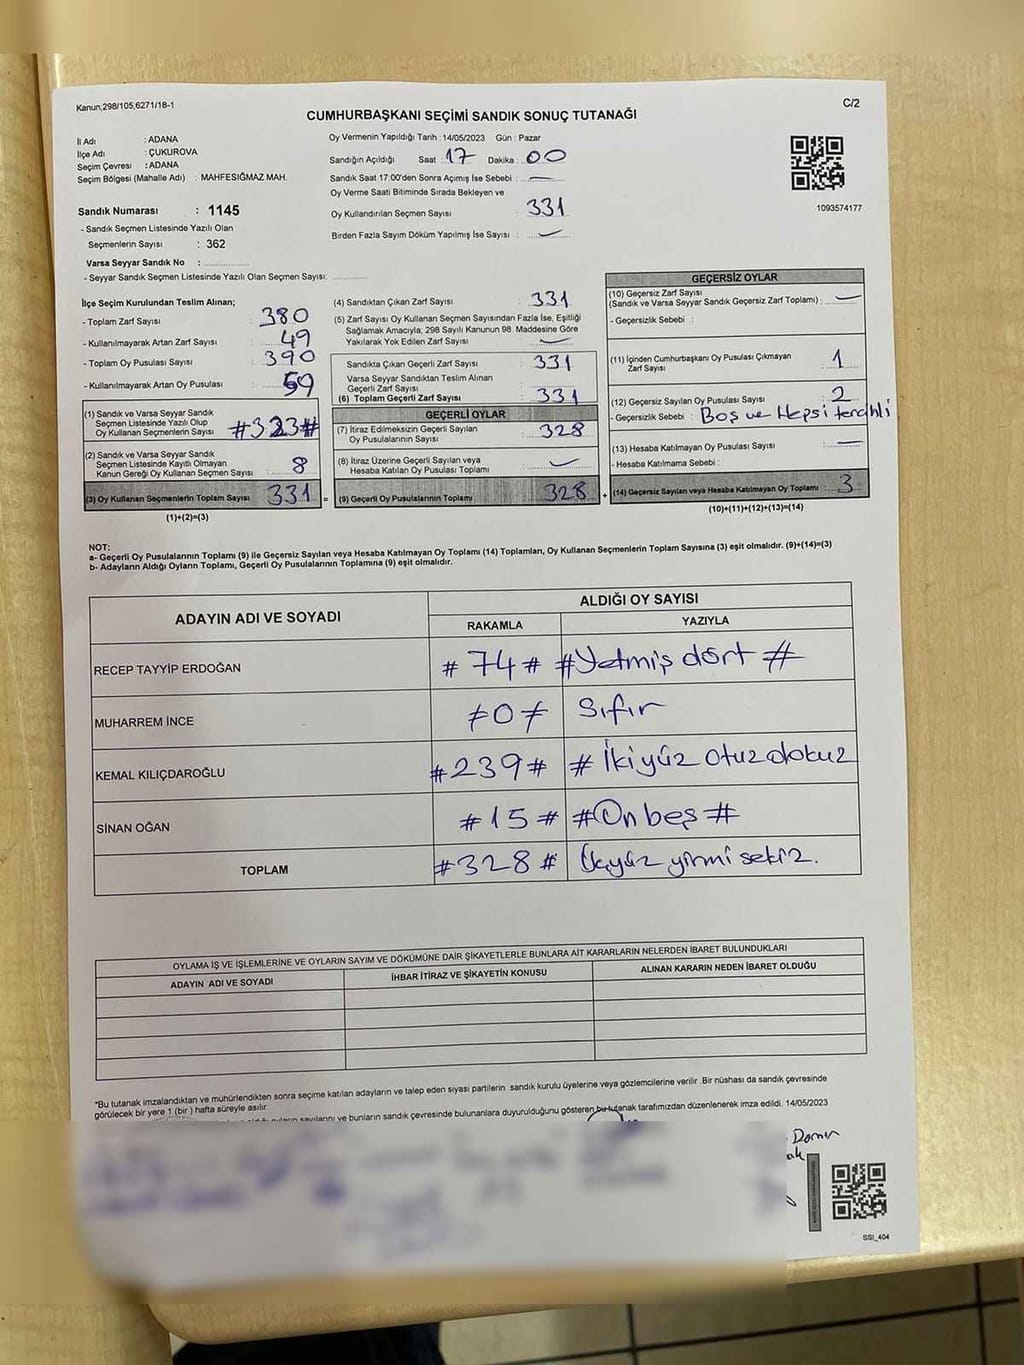 Kanun;298/105,6271/18-1
C/2
CUMHURBAŞKANI SEÇİMİ SANDIK SONUÇ TUTANAĞI
İl Adı : ADANA
İlçe Adı : ÇUKUROVA
Seçim Çevresi : ADANA
Seçim Bölgesi (Mahalle Adı) : MAHFESIĞMAZ MAH.
Oy Vermenin Yapıldığı Tarih :14/05/2023 Gün : Pazar
Sandığın Açıldığı Saat :17 Dakika :00
Sandık Saat 17:00'den Sonra Açımış İse Sebebi : —
Oy Verme Saati Bitiminde Sırada Bekleyen ve
Oy Kullandırılan Seçmen Sayısı : 331
Birden Fazla Sayım Döküm Yapılmış İse Sayısı :
1093574177
Sandık Numarası : 1145
- Sandık Seçmen Listesinde Yazılı Olan
Seçmenlerin Sayısı : 362
Varsa Seyyar Sandık No :
- Seyyar Sandık Seçmen Listesinde Yazılı Olan Seçmen Sayısı:
İlçe Seçim Kurulundan Teslim Alınan;
- Toplam Zarf Sayısı : 380
- Kullanılmayarak Artan Zarf Sayısı : 49
- Toplam Oy Pusulası Sayısı : 390
- Kullanılmayarak Artan Oy Pusulası : 59
(1) Sandık ve Varsa Seyyar Sandık
Seçmen Listesinde Yazılı Olup
Oy Kullanan Seçmenlerin Sayısı : #323#
(2) Sandık ve Varsa Seyyar Sandık
Seçmen Listesinde Kayıtlı Olmayan
Kanun Gereği Oy Kullanan Seçmen Sayısı : 8
(3) Oy Kullanan Seçmenlerin Toplam Sayısı : 331 =
(1)+(2)=(3)
(4) Sandıktan Çıkan Zarf Sayısı : 331
(5) Zarf Sayısı Oy Kullanan Seçmen Sayısından Fazla İse, Eşitliği
Sağlamak Amacıyla; 298 Sayılı Kanunun 98. Maddesine Göre
Yakılarak Yok Edilen Zarf Sayısı :
Sandıkta Çıkan Geçerli Zarf Sayısı : 331
Varsa Seyyar Sandıktan Teslim Alınan
Geçerli Zarf Sayısı :
(6) Toplam Geçerli Zarf Sayısı : 331
GEÇERLİ OYLAR
(7) İtiraz Edilmeksizin Geçerli Sayılan
Oy Pusulalarının Sayısı : 328
(8) İtiraz Üzerine Geçerli Sayılan veya
Hesaba Katılan Oy Pusulası Toplamı :
(9) Geçerli Oy Pusulalarının Toplamı : 328 +
GEÇERSİZ OYLAR
(10) Geçersiz Zarf Sayısı
(Sandık ve Varsa Seyyar Sandık Geçersiz Zarf Toplamı) : —
- Geçersizlik Sebebi :
(11) İçinden Cumhurbaşkanı Oy Pusulası Çıkmayan
Zarf Sayısı : 1
(12) Geçersiz Sayılan Oy Pusulası Sayısı : 2
- Geçersizlik Sebebi : Boş ve Hepsi tercihli
(13) Hesaba Katılmayan Oy Pusulası Sayısı : —
- Hesaba Katılmama Sebebi :
(14) Geçersiz Sayılan veya Hesaba Katılmayan Oy Toplamı : 3
(10)+(11)+(12)+(13)=(14)
NOT:
a- Geçerli Oy Pusulalarının Toplamı (9) ile Geçersiz Sayılan veya Hesaba Katılmayan Oy Toplamı (14) Toplamları, Oy Kullanan Seçmenlerin Toplam Sayısına (3) eşit olmalıdır. (9)+(14)=(3)
b- Adayların Aldığı Oyların Toplamı, Geçerli Oy Pusulalarının Toplamına (9) eşit olmalıdır.
ADAYIN ADI VE SOYADI
ALDIĞI OY SAYISI
RAKAMLA YAZIYLA
RECEP TAYYİP ERDOĞAN #74# #Yetmiş dört#
MUHARREM İNCE ≠0≠ Sıfır
KEMAL KILIÇDAROĞLU #239# # İkiyüz otuz dokuz
SİNAN OĞAN #15# #On beş#
TOPLAM #328# Üçyüz yirmi sekiz.
OYLAMA İŞ VE İŞLEMLERİNE VE OYLARIN SAYIM VE DÖKÜMÜNE DAİR ŞİKAYETLERLE BUNLARA AİT KARARLARIN NELERDEN İBARET BULUNDUKLARI
ADAYIN ADI VE SOYADI İHBAR İTİRAZ VE ŞİKAYETİN KONUSU ALINAN KARARIN NEDEN İBARET OLDUĞU
*Bu tutanak imzalandıktan ve mühürlendikten sonra seçime katılan adayların ve talep eden siyasi partilerin sandık kurulu üyelerine veya gözlemcilerine verilir .Bir nüshası da sandık çevresinde
görülecek bir yere 1 (bir ) hafta süreyle asılır.
sayılarını ve bunların sandık çevresinde bulunanlara duyurulduğunu gösteren bu tutanak tarafımızdan düzenlenerek imza edildi. 14/05/2023
SSI_404